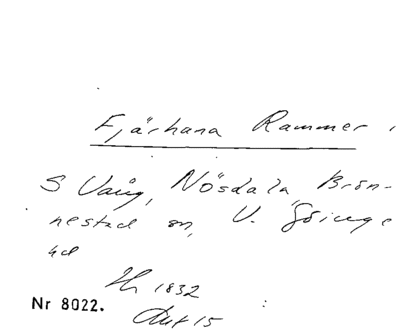 Fjärhana Rammer
S Vång, Nösdala, Brön-
nestad sn, V. Göinge
hd
Hr 1832
Nr 8022.
Aut 15